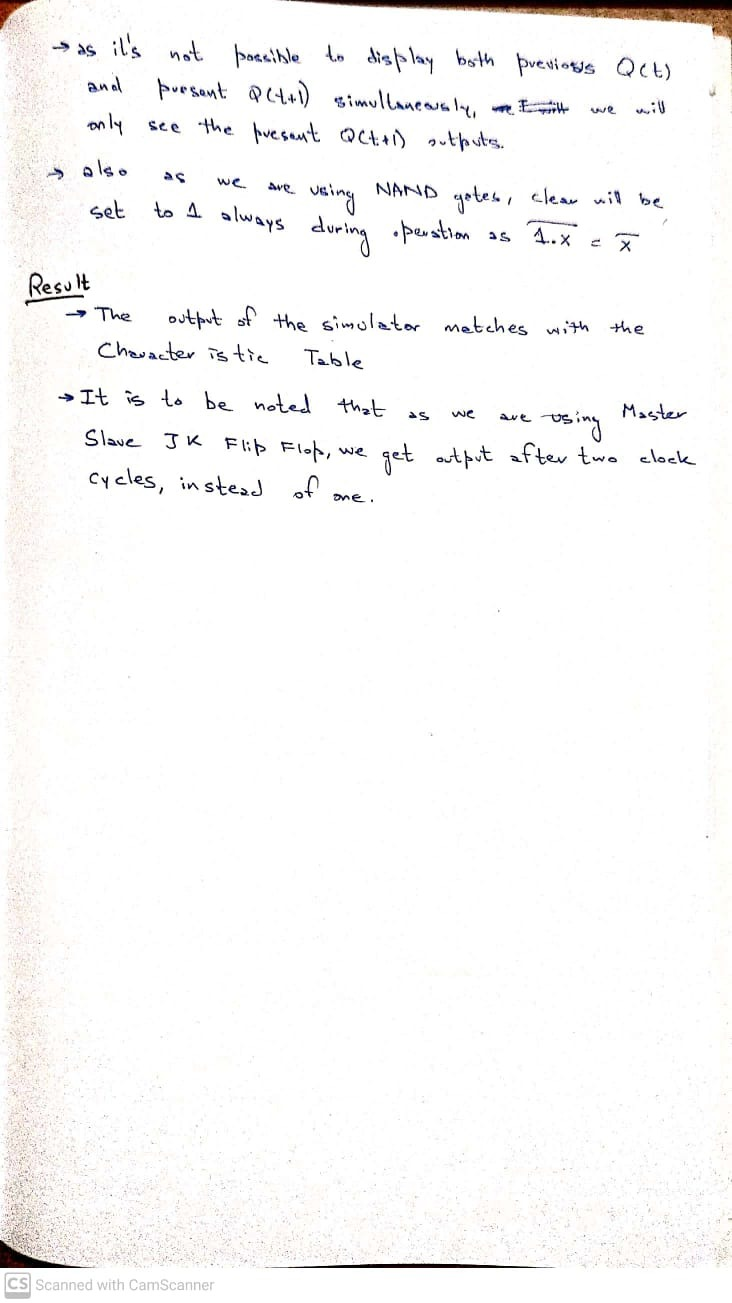 → as it's not possible to display both previous Q(t)
and present Q(t+1) simultaneously, we will
only see the present Q(t+1) outputs.
→ also as we are using NAND gates, clear will be
set to 1 always during operation as \overline{1.x} = \overline{x}
Result
→ The output of the simulator matches with the
Characteristic Table
→ It is to be noted that as we are using Master
Slave JK Flip Flop, we get output after two clock
cycles, instead of one.
CS Scanned with CamScanner